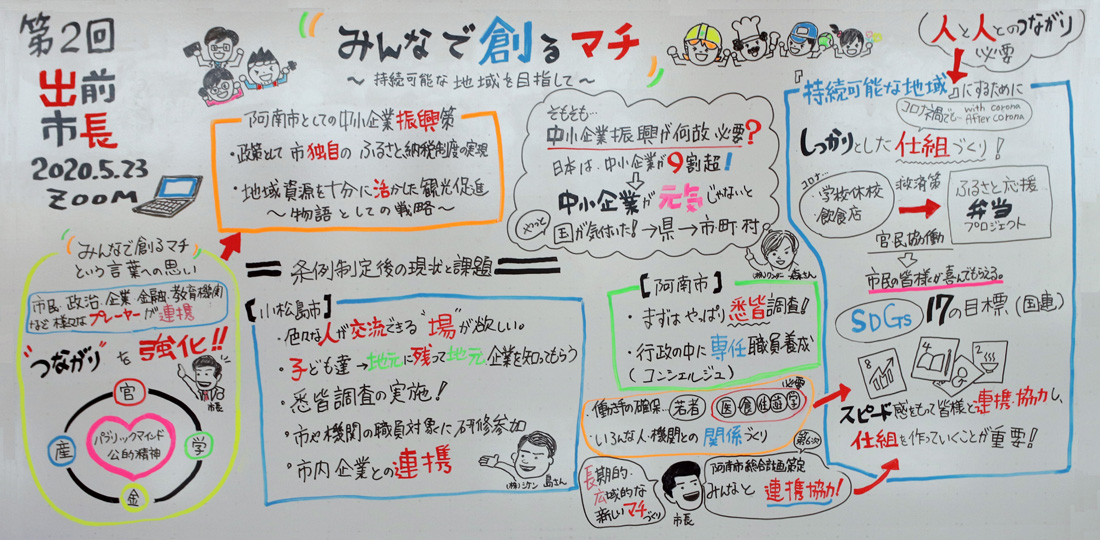 第2回
出前
市長
2020.5.23
ZOOM
みんなで創るマチ
～持続可能な地域を目指して～
人と人とのつながり
必要
阿南市としての中小企業振興策
・政策として市独自のふるさと納税制度の実現
・地域資源を十分に活かした観光促進
～物語としての戦略～
そもそも…
中小企業振興が何故必要?
日本は、中小企業が9割超!
中小企業が元気じゃないと
やっと
国が気付いた!→県→市町村
みんなで創るマチ
という言葉への思い
市民、政治、企業、金融、教育機関
など様々なプレーヤーが連携
"つながり"を強化!!
市長
官
産
学
金
パブリックマインド
公的精神
条例制定後の現状と課題
【小松島市】
・色々な人が交流できる"場"が欲しい。
・子ども達→地元に残って地元企業を知ってもらう
・悉皆調査の実施!
・市や機関の職員対象に研修参加
・市内企業との連携
島さん
【阿南市】
・まずはやっぱり悉皆調査!
・行政の中に専任職員養成
(コンシェルジュ)
・働き手の確保…若者
必要
医・食・住・遊・学
・いろんな人・機関との関係づくり
長期的・
広域的な
新しいマチづくり
市長
阿南市総合計画策定
みんなと連携協力!
『持続可能な地域』にするために
コロナ禍でも… with corona
After corona
しっかりとした仕組づくり!
コロナ…
・学校休校
・飲食店
救済策
ふるさと応援
弁当
プロジェクト
官民協働
市民の皆様が喜んでもらえる。
SDGs 17の目標(国連)
8
4
2
スピード感をもって皆様と連携・協力し、
仕組を作っていくことが重要!